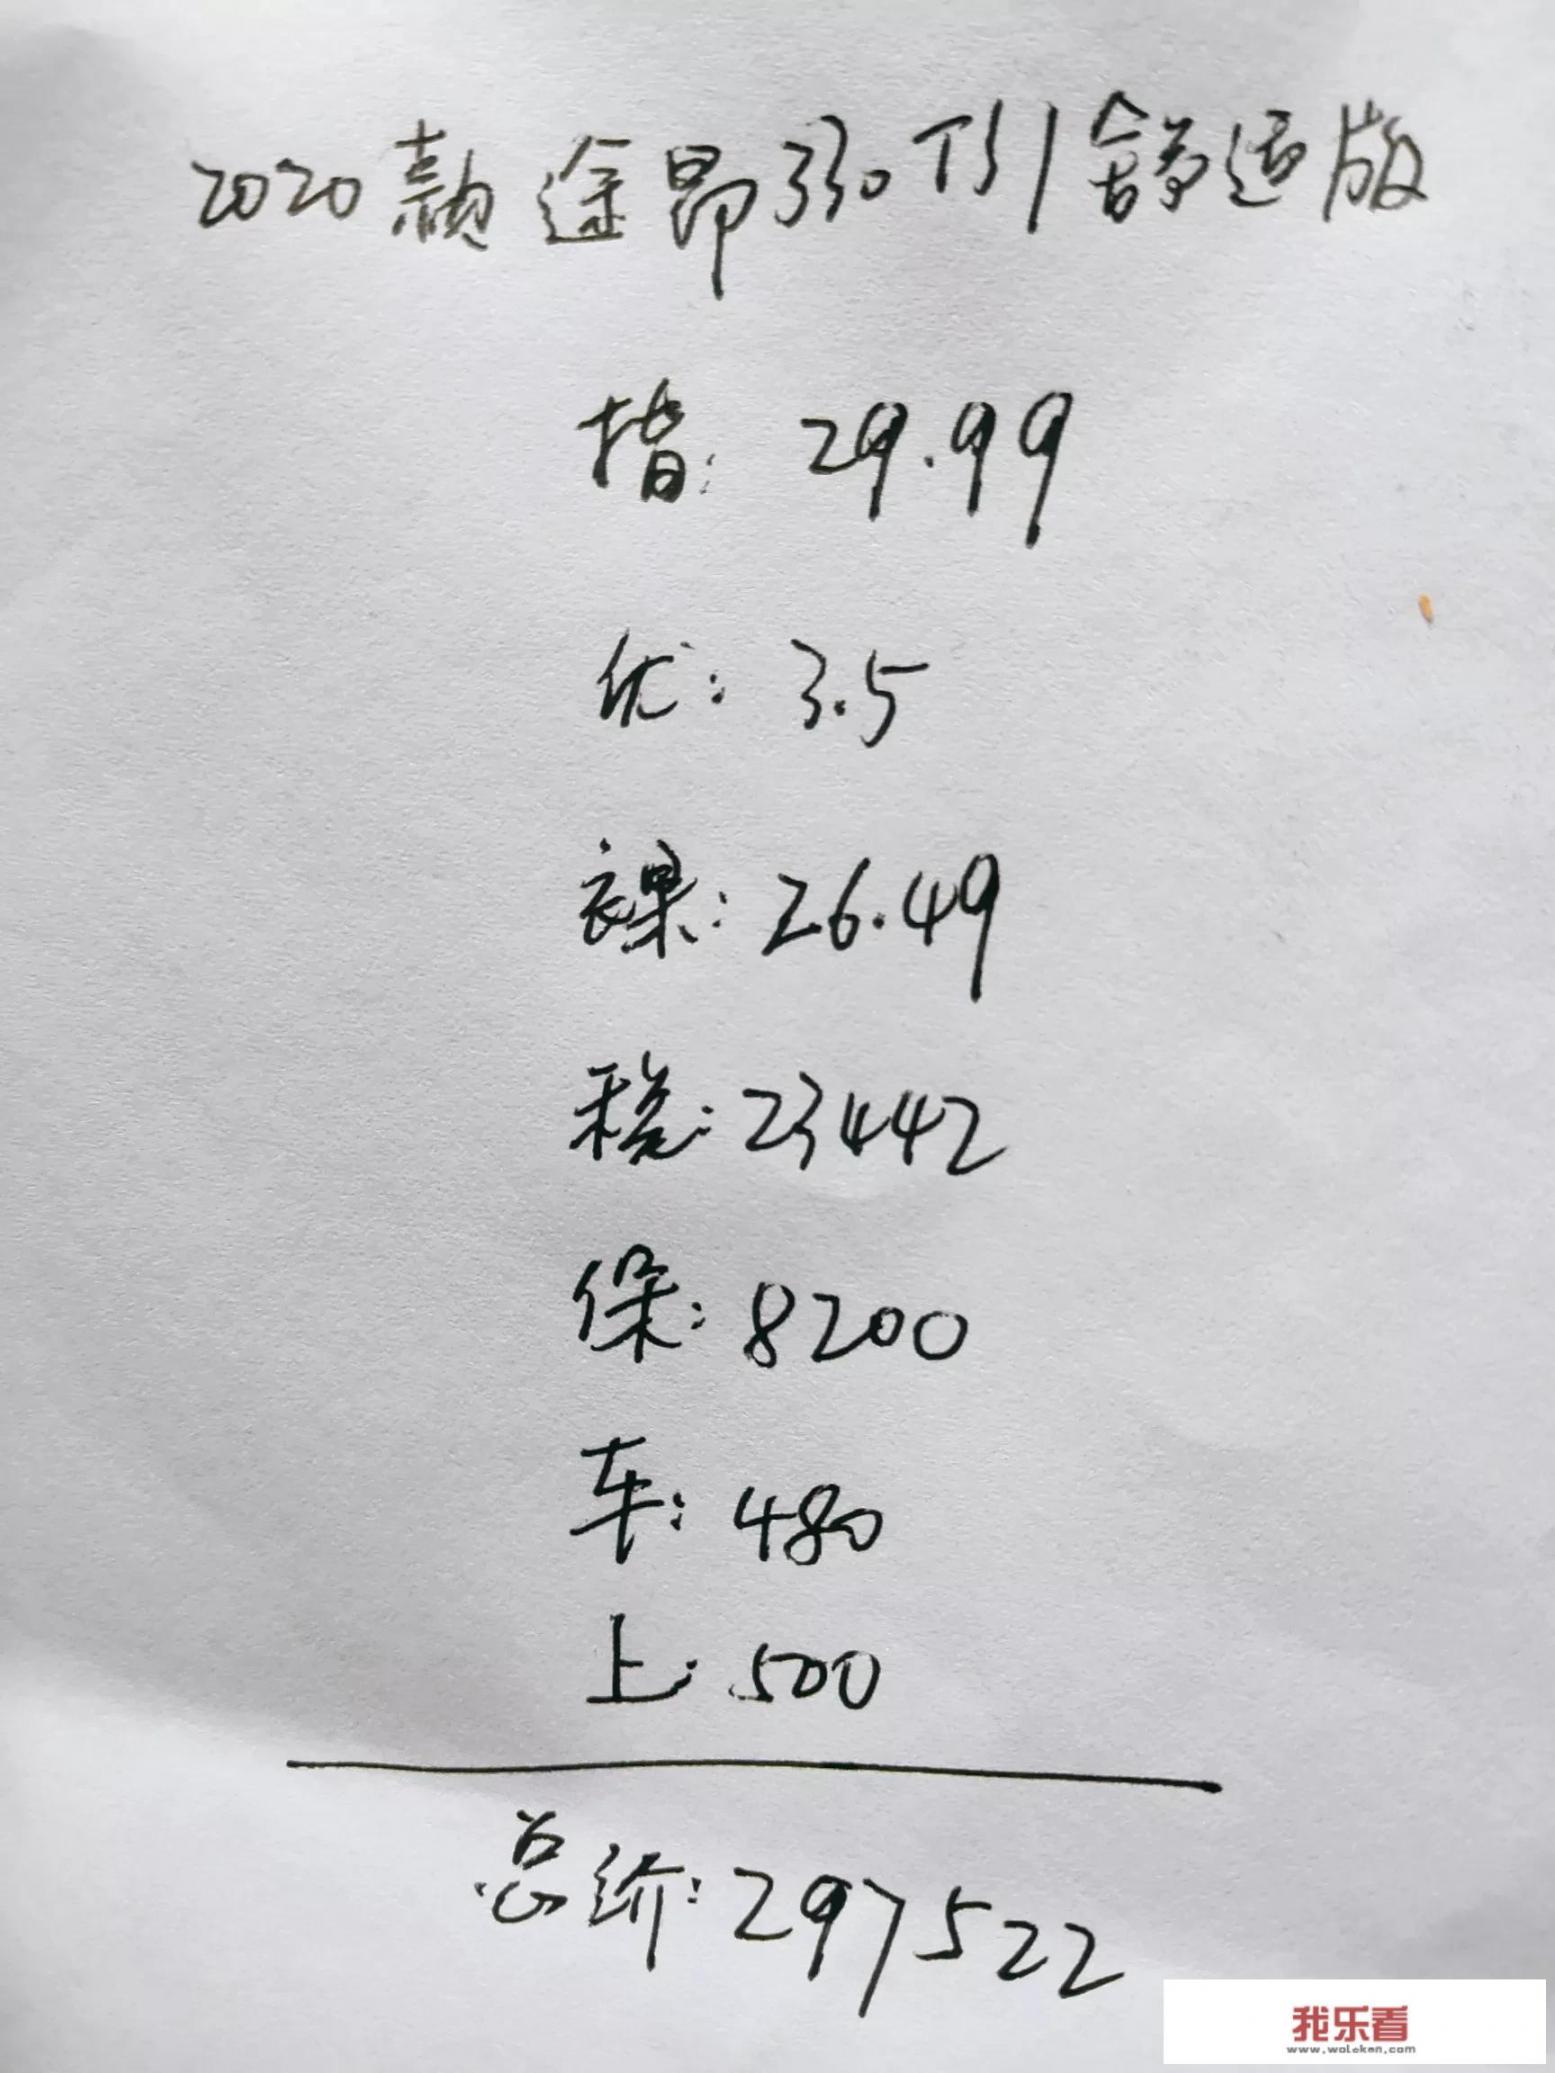 2020款途昂330TSI舒适版
指: 29.99
优: 3.5
裸: 26.49
税: 23442
保: 8200
车: 480
上: 500
总价: 297522
我乐看
www.woleken.com